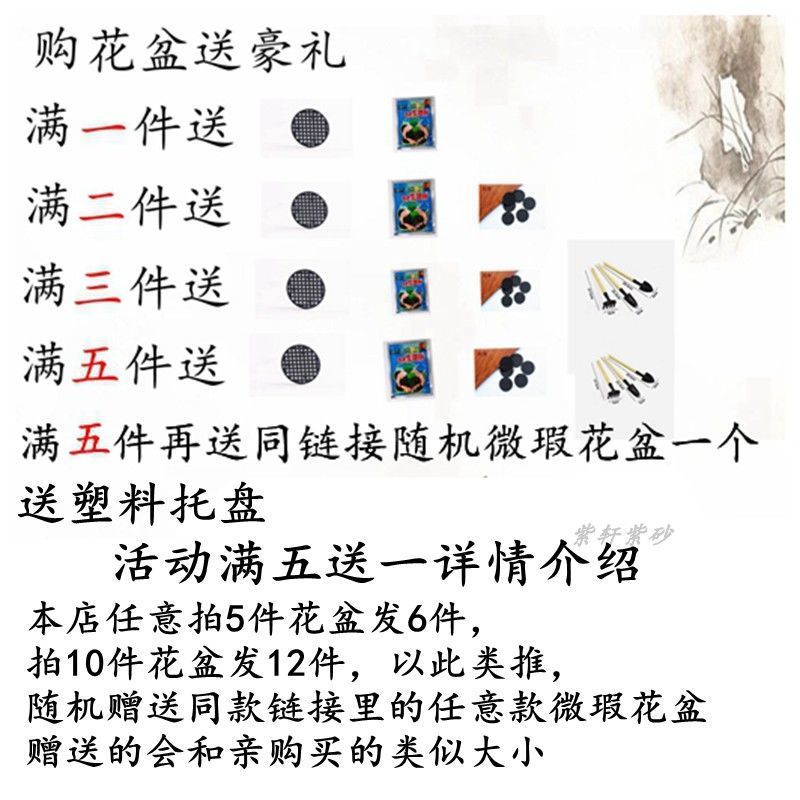 购花盆送豪礼
满一件送
满二件送
满三件送
满五件送
满五件再送同链接随机微瑕花盆一个
送塑料托盘
紫轩紫砂
活动满五送一详情介绍
本店任意拍5件花盆发6件，
拍10件花盆发12件，以此类推，
随机赠送同款链接里的任意款微瑕花盆
赠送的会和亲购买的类似大小